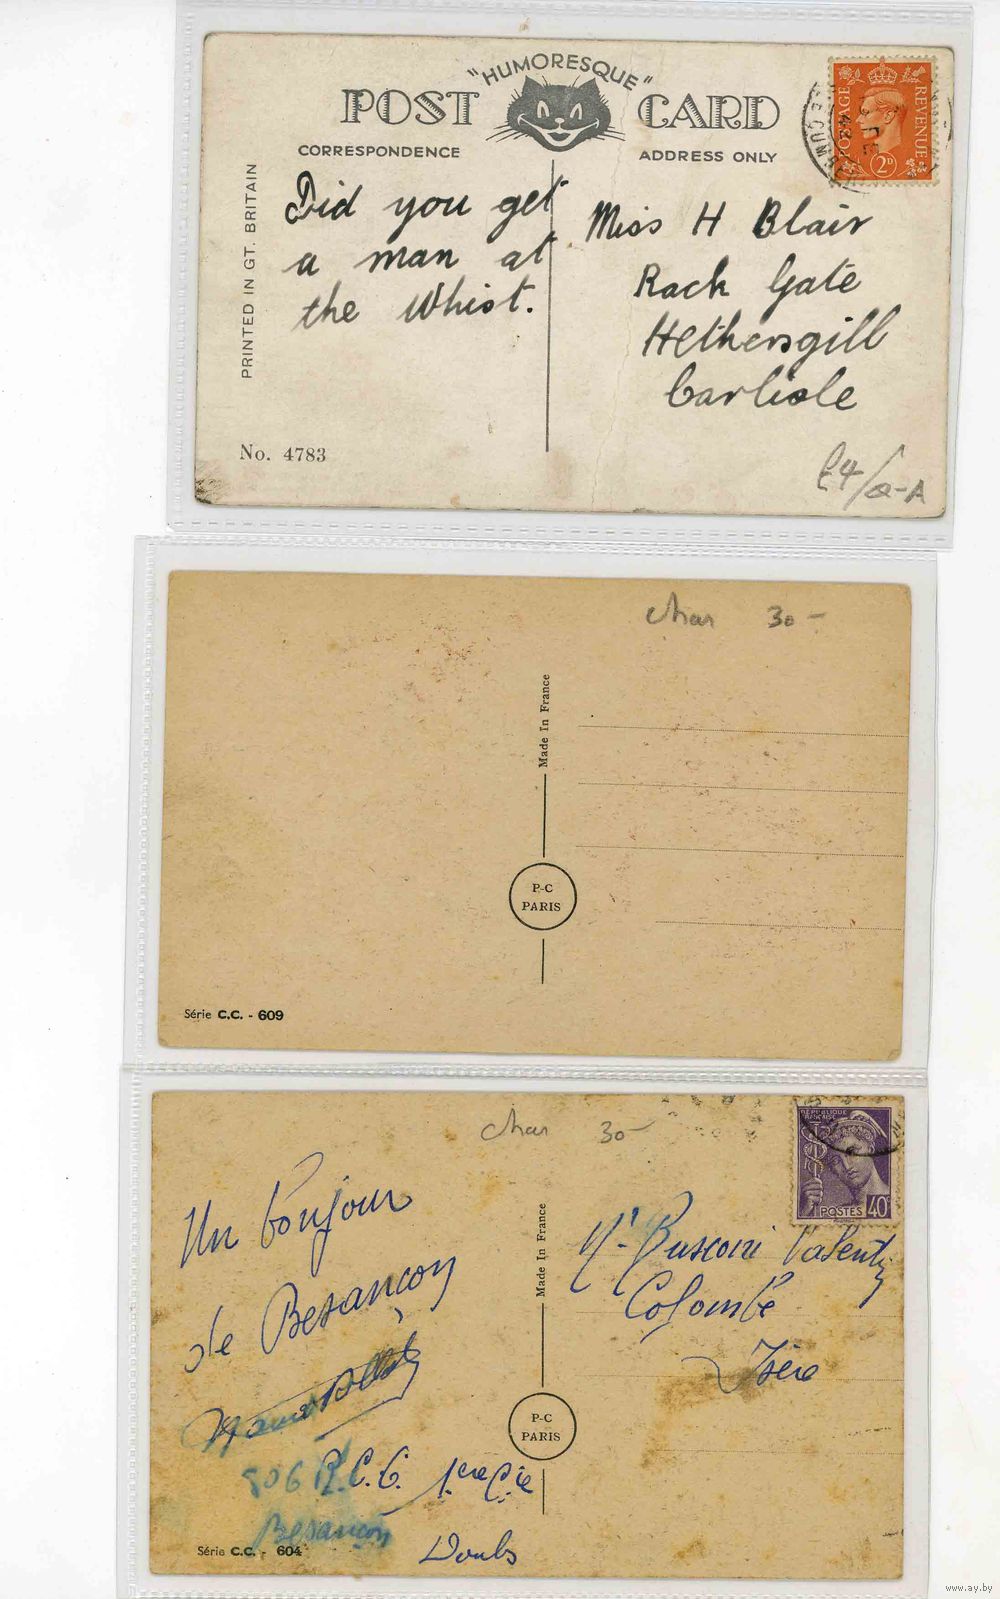 "HUMORESQUE"
POST CARD
CORRESPONDENCE
ADDRESS ONLY
PRINTED IN GT. BRITAIN
POSTAGE
REVENUE
2D
Did you get
a man at
the Whist.
Miss H Blair
Rack Gate
Hethersgill
Carlisle
No. 4783
£4/
char 30-
Made In France
P-C
PARIS
Série C.C. - 609
char 30-
REPUBLIQUE
FRANÇAISE
POSTES 40c
Un bonjour
de Besançon
806
1ère Cie
Besançon
Doubs
Colombe
Isère
Made In France
P-C
PARIS
Série C.C. - 604
www.ay.by